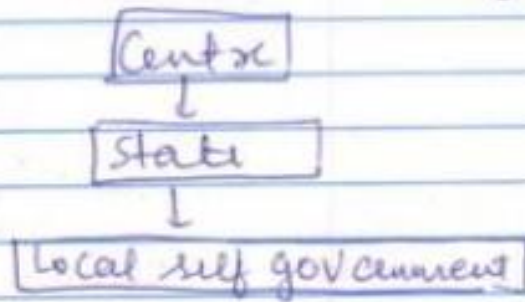 Centre
State
Local self government